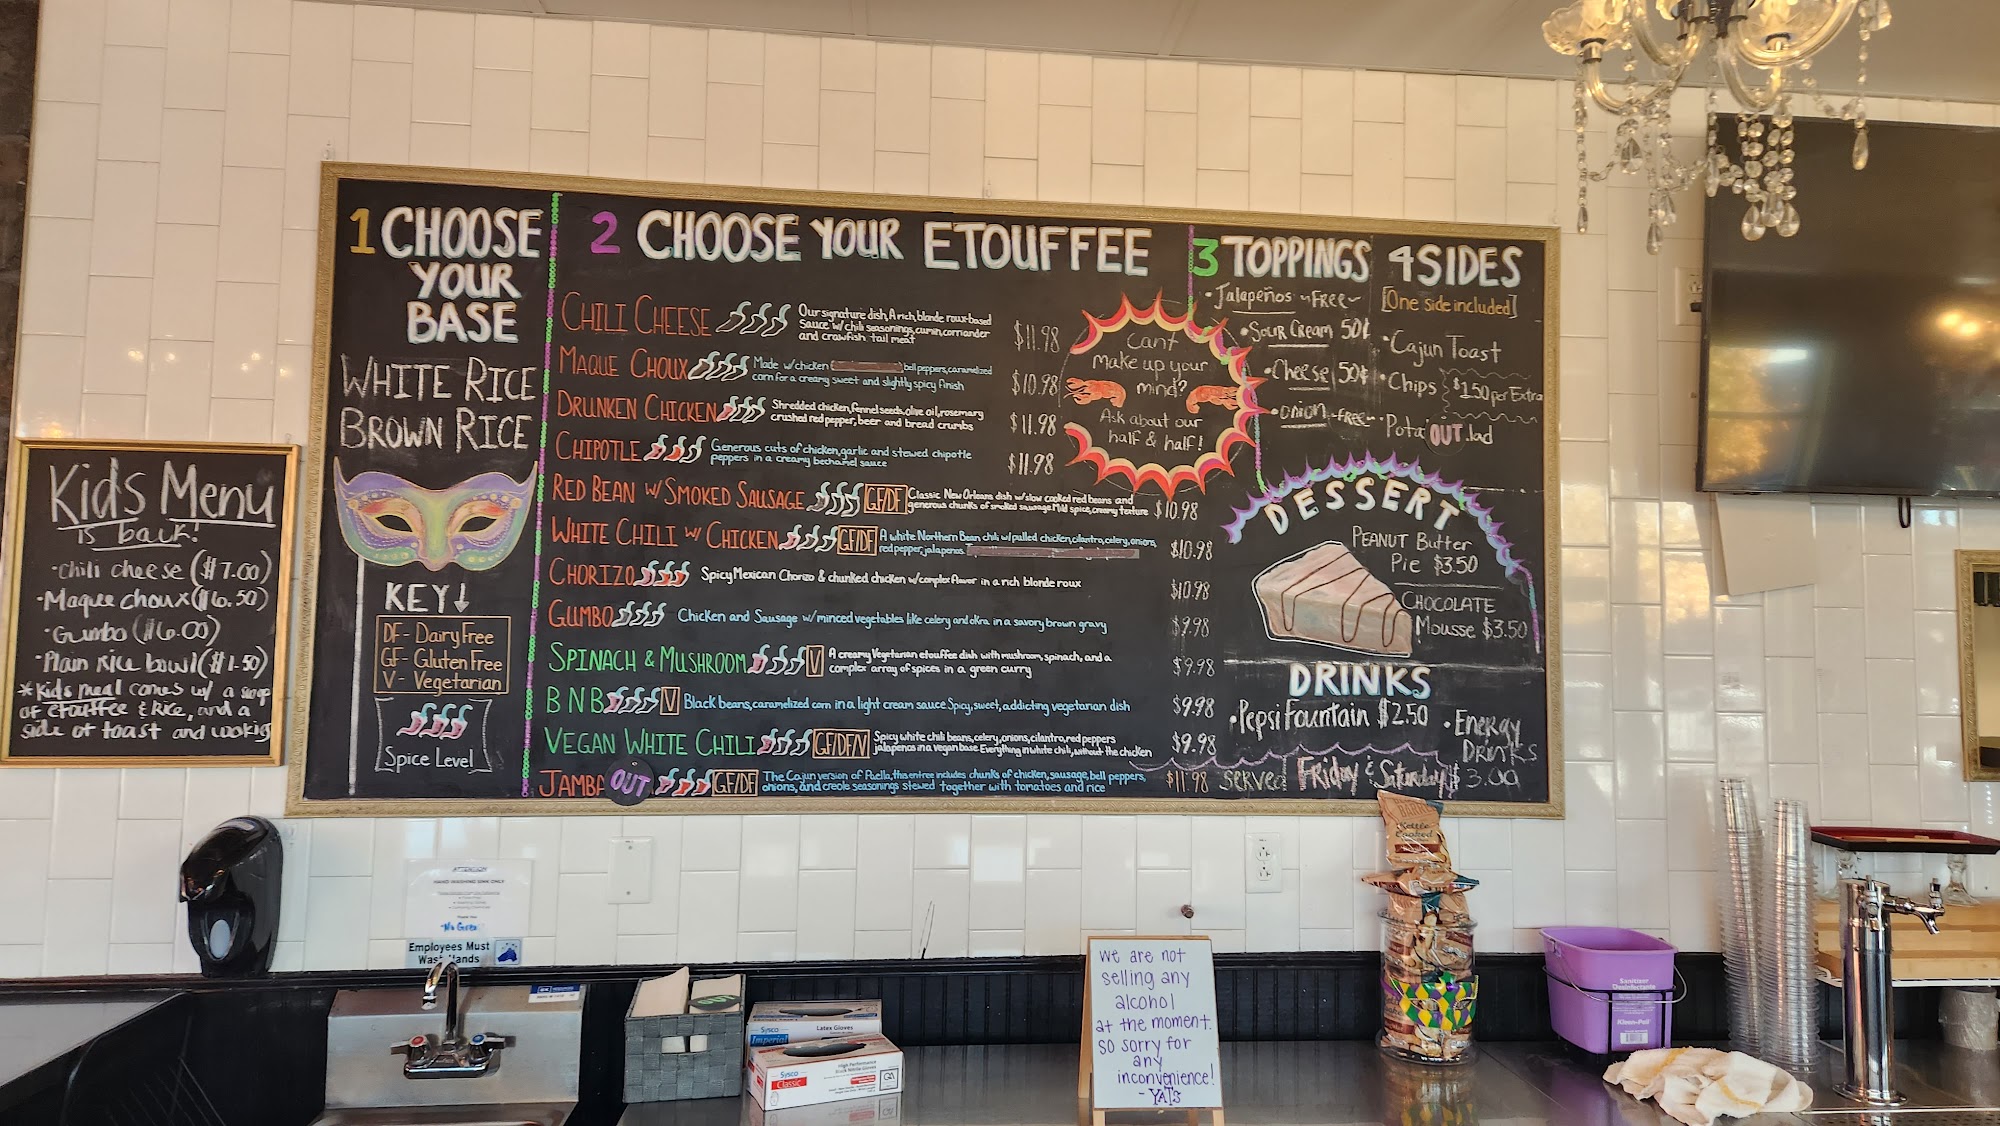 Kids Menu
is back!
•chili cheese ($7.00)
•Maque choux ($6.50)
•Gumbo ($6.00)
•Plain rice bowl ($1.50)
*Kids meal comes w/ a scoop
of etouffee & Rice, and a
side of toast and cookie
1 CHOOSE
YOUR
BASE
WHITE RICE
BROWN RICE
KEY↓
DF- Dairy Free
GF- Gluten Free
V- Vegetarian
Spice Level
2 CHOOSE YOUR ETOUFFEE
CHILI CHEESE Our signature dish, A rich, blonde roux-based
Sauce w/ chili seasonings, cumin, corriander
and crawfish tail meat $11.98
MAQUE CHOUX Made w/chicken bell peppers, caramelized
corn for a creamy sweet and slightly spicy finish $10.98
DRUNKEN CHICKEN Shredded chicken, fennel seeds, olive oil, rosemary
crushed red pepper, beer and bread crumbs $11.98
CHIPOTLE Generous cuts of chicken, garlic and stewed chipotle
peppers in a creamy bechamel sauce $11.98
RED BEAN W/ SMOKED SAUSAGE GF/DF Classic New Orleans dish w/slow cooked red beans and
generous chunks of smoked sausage. Mild spice, creamy texture $10.98
WHITE CHILI W/ CHICKEN GF/DF A white Northern Bean chili w/ pulled chicken, cilantro, celery, onions,
red pepper, jalapenos. $10.98
CHORIZO Spicy Mexican Chorizo & chunked chicken w/complex flavor in a rich blonde roux $10.98
GUMBO Chicken and Sausage w/minced vegetables like celery and okra in a savory brown gravy $9.98
SPINACH & MUSHROOM V A creamy Vegetarian etouffee dish with mushroom, spinach, and a
complex array of spices in a green curry $9.98
B N B V Black beans, caramelized corn in a light cream sauce Spicy, sweet, addicting vegetarian dish $9.98
VEGAN WHITE CHILI GF/DF/V Spicy white chili beans, celery, onions, cilantro, red peppers
jalapenos in a vegan base. Everything in white chili, without the chicken $9.98
JAMBA OUT GF/DF The Cajun version of Paella, this entree includes chunks of chicken, sausage, bell peppers,
onions, and creole seasonings stewed together with tomatoes and rice $11.98
Can't
make up your
mind?
Ask about our
half & half!
3 TOPPINGS
•Jalapeños ~FREE~
•Sour Cream 50¢
•Cheese 50¢
•onion ~FREE~
4 SIDES
[One side included]
•Cajun Toast
•Chips $1.50 per Extra
•Pota OUT lad
DESSERT
PEANUT Butter
Pie $3.50
CHOCOLATE
Mousse $3.50
DRINKS
•Pepsi Fountain $2.50
•Energy
DRINKS
$3.00
served Friday & Saturday
ATTENTION
HAND WASHING SINK ONLY
Employees Must
Wash Hands
OUT
Sysco
Imperial
Latex Gloves
Sysco
Classic
High Performance
Kettle
Cooked
we are not
selling any
alcohol
at the moment.
so sorry for
any
inconvenience!
-YATS
Sanitizer
Kleen-Pail